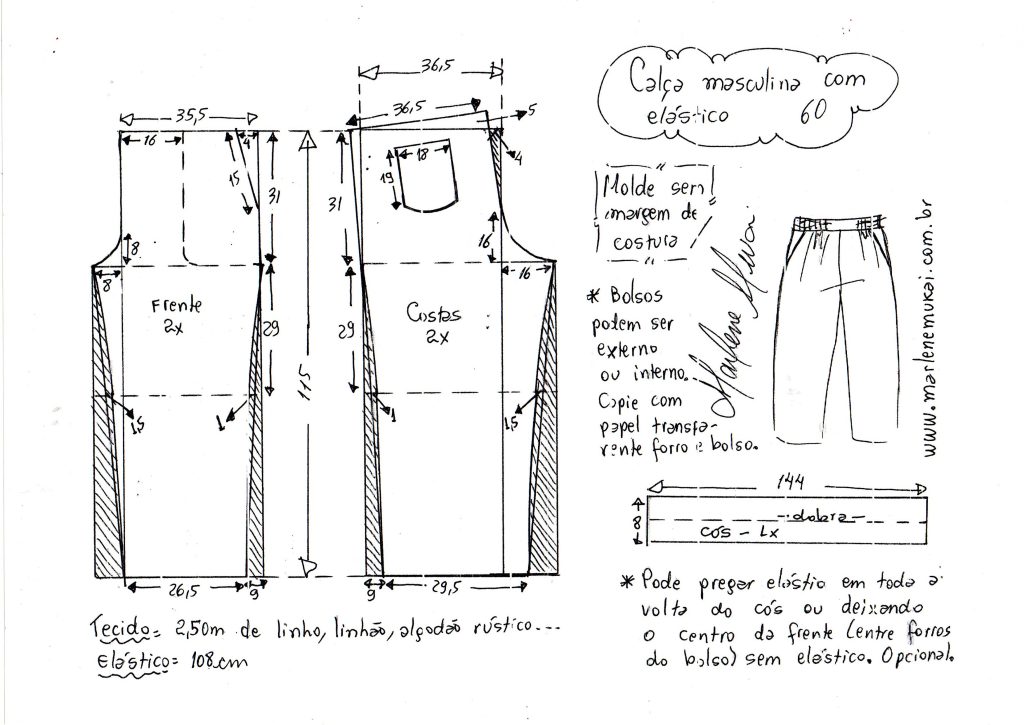 Calça masculina com
elástico 60
Molde sem
margem de
costura
Marlene Mukai
www.marlenemukai.com.br
* Bolsos
podem ser
externo
ou interno.
Copie com
papel transpa-
rente forro e bolso.
35,5
16
4
15
31
8
8
Frente
2x
29
1,5
1
26,5
9
115
36,5
36,5
5
4
18
19
31
16
16
Costas
2x
29
1
1,5
9
29,5
144
8
dobra
cós - 1x
* Pode pregar elástio em toda a
volta do cós ou deixando
o centro da frente (entre forros
do bolso) sem elástico. Opcional.
Tecido= 2,50m de linho, linhão, algodão rústico...
Elástico= 108cm